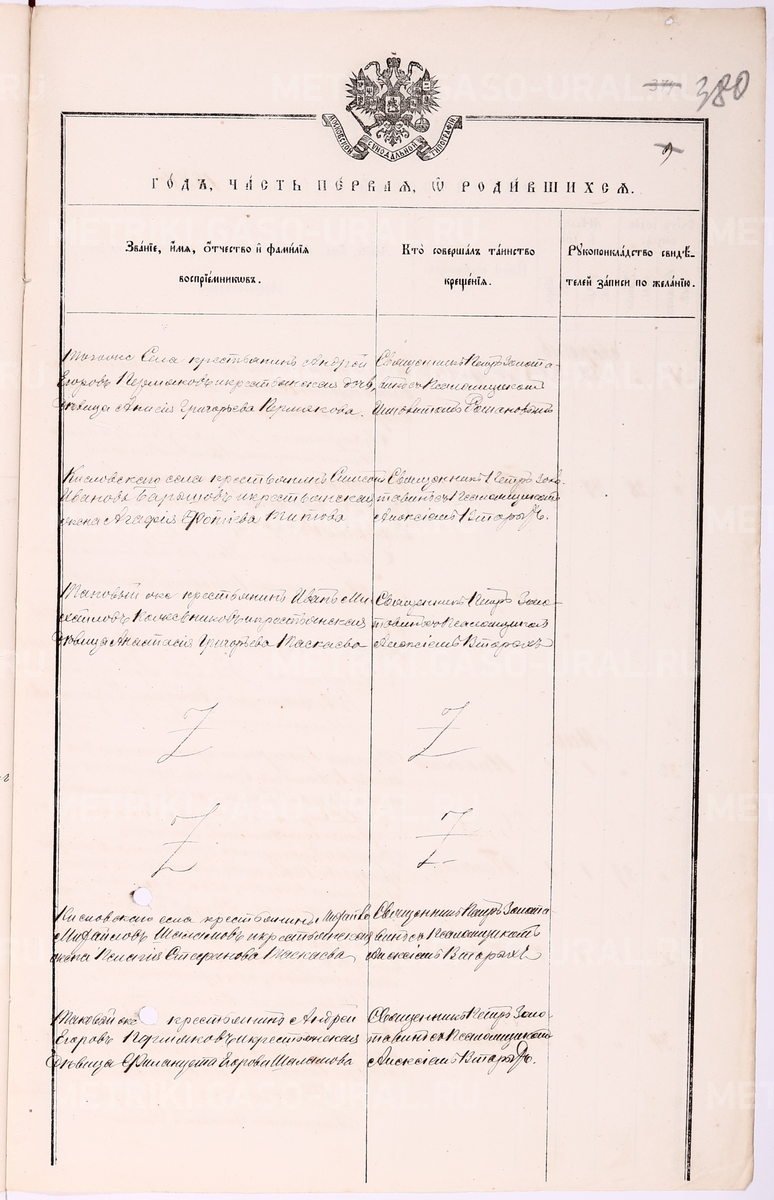 380
МОСКОВСКОЙ СѴНОДАЛЬНОЙ ТИПОГРАФІИ
9
ГОДЪ, ЧАСТЬ ПЕРВАЯ, Ѡ РОДИВШИХСЯ.
Званіе, имя, отчество и фамилія
воспріемниковъ.
Кто совершалъ таинство
крещенія.
Рукоприкладство свидѣ-
телей записи по желанію.
Села крестьянинъ Андрей
Егоровъ Пермяковъ и крестьянская дочь,
дѣвица Анисія Григорьева Пермякова.
Священникъ Петръ Золота-
съ Псаломщикомъ
Кисловскаго села крестьянинъ
Ивановъ Барышовъ и крестьянская
жена Агафія Фотіева Титова
Священникъ Петръ Золо-
тавинъ съ Псаломщикомъ
Алексіемъ Вторыхъ.
Таковый же крестьянинъ Иванъ Ми-
хайловъ и крестьянская
дѣвица Анастасія Григорьева Таскаева
Священникъ Петръ Золо-
тавинъ съ Псаломщикомъ
Алексіемъ Вторыхъ
Z Z
Z Z
Кисловскаго села крестьянинъ
Михайловъ Шаламовъ и крестьянская
жена Пелагія Стефанова Таскаева
Священникъ Петръ Золота
винъ съ Псаломщикомъ
Алексіемъ Вторыхъ
Таковый же крестьянинъ Андрей
Егоровъ Пермяковъ и крестьянская
дѣвица Егорова Шаламова
Священникъ Петръ Золо-
тавинъ съ Псаломщикомъ
Алексіемъ Вторыхъ.
METRIKI.GASO-URAL.RU